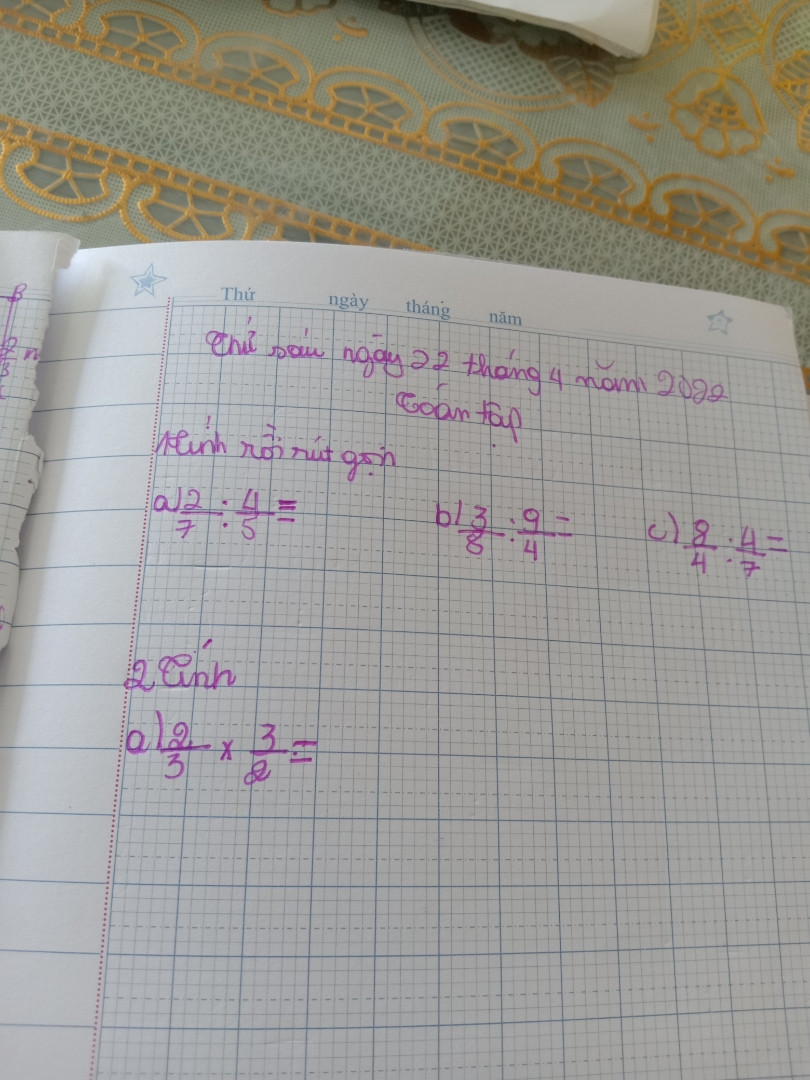 Thứ ngày tháng năm
Thứ sáu ngày 22 tháng 4 năm 2022
Toán tập
Tính rồi rút gọn
a) 2/7 : 4/5 = b) 3/8 : 9/4 = c) 8/4 : 4/7 =
2 Tính
a) 2/3 x 3/2 =